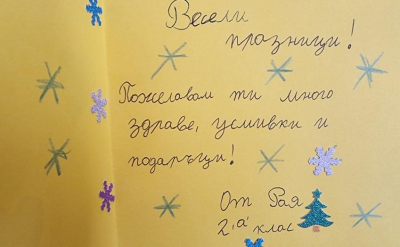 Весели
празници!
Пожелавам ти много
здраве, усмивки и
подаръци!
От Рая
2 "а" клас